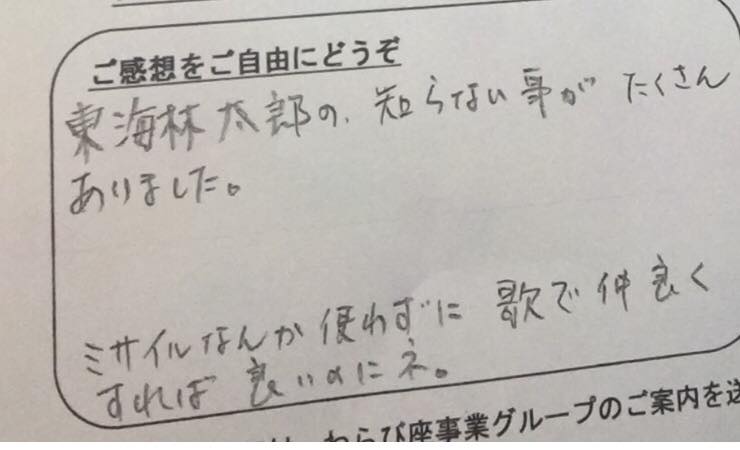 ご感想をご自由にどうぞ
東海林太郎の、知らない事が たくさん
ありました。
ミサイルなんか使わずに 歌で仲良く
すれば良いのにネ。
わらび座事業グループのご案内を送